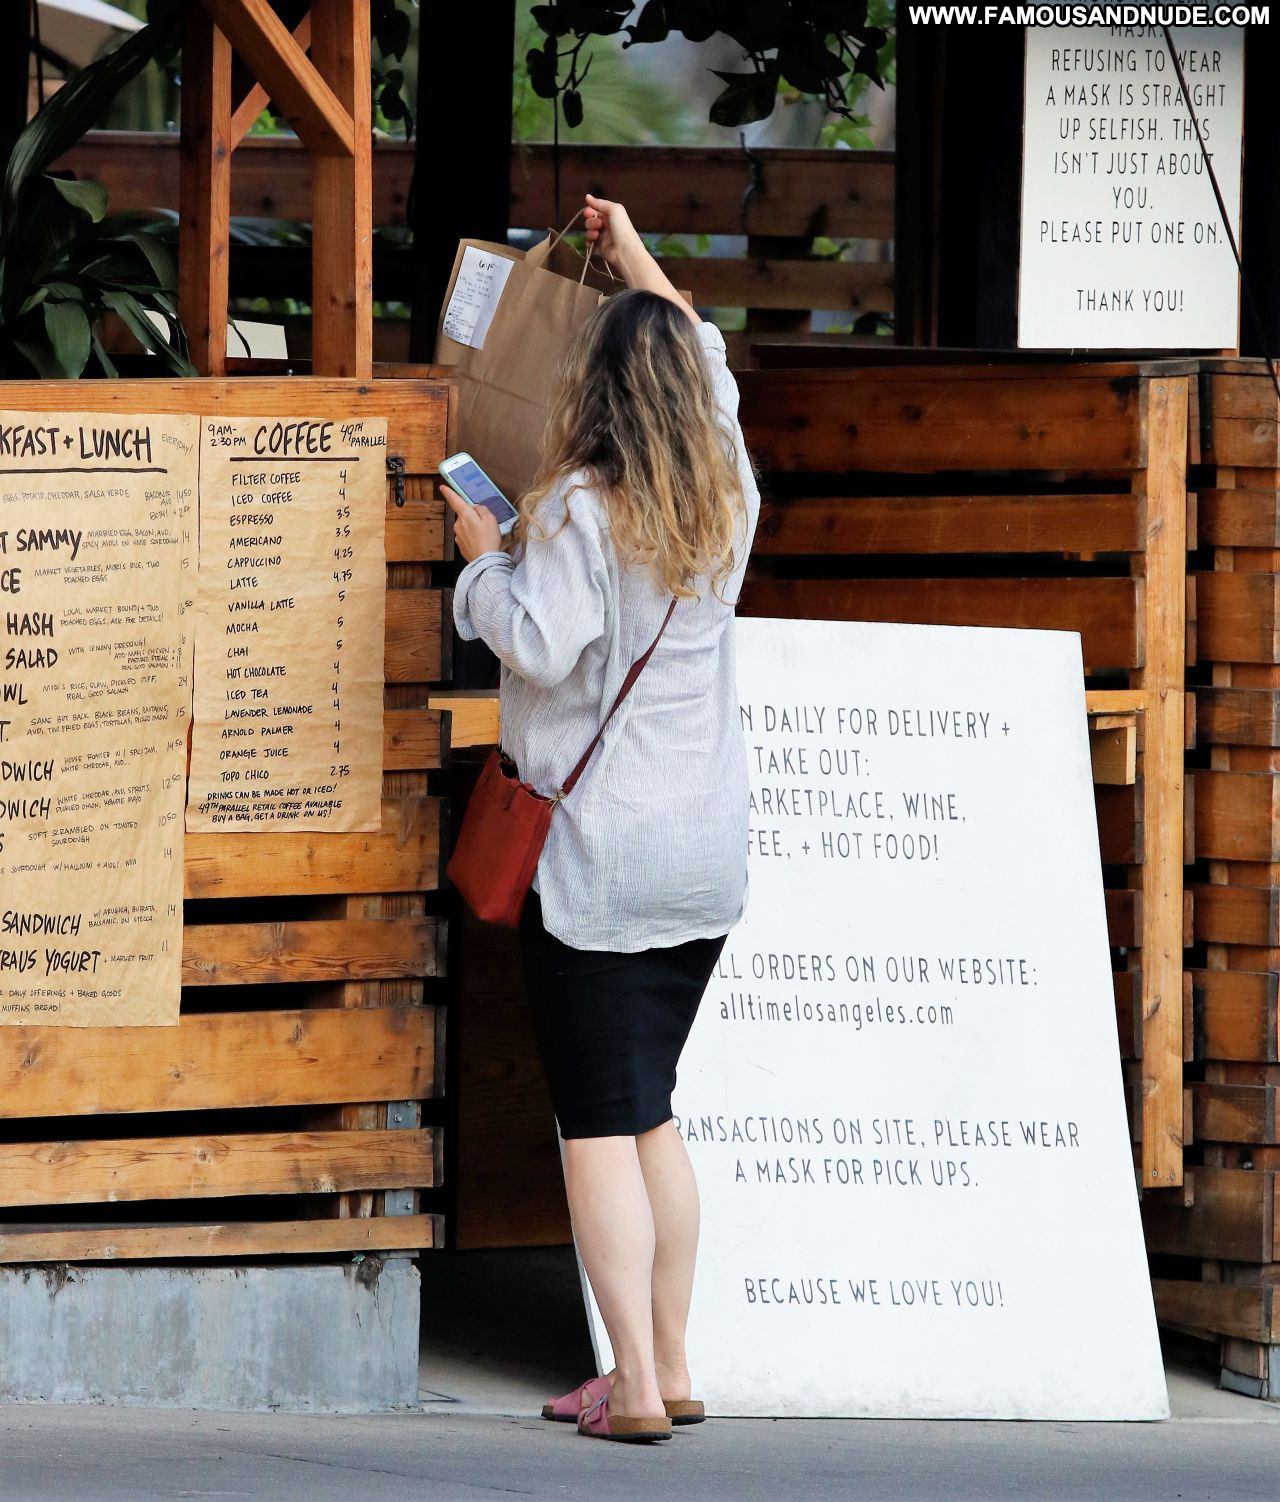 WWW.FAMOUSANDNUDE.COM
MASK.
REFUSING TO WEAR
A MASK IS STRAIGHT
UP SELFISH. THIS
ISN'T JUST ABOUT
YOU.
PLEASE PUT ONE ON.
THANK YOU!
KFAST + LUNCH EVERYDAY!
EGGS, POTATO, CHEDDAR, SALSA VERDE
T SAMMY MARBLED EGG, BACON, AVO, SPICY AIOLI ON HOUSE SOURDOUGH 14
CE MARKET VEGETABLES, MORI'S RICE, TWO POACHED EGGS 15
HASH LOCAL MARKET BOUNTY + TWO POACHED EGGS, ASK FOR DETAILS! 16.50
SALAD WITH LEMONY DRESSING! 16
OWL MORI'S RICE, SLAW, PICKLED STUFF, REAL GOOD SALMON 24
T. SAME BUT BACK. BLACK BEANS, AVO, TWO FRIED EGGS, TORTILLAS, PICKLED ONION 15
DWICH HOUSE ROASTED W/ SPICY JAM, WHITE CHEDDAR, AVO... 14.50
DWICH WHITE CHEDDAR, AVO, SPROUTS, PICKLED ONION, KEWPIE MAYO 12.50
S SOFT SCRAMBLED ON TOASTED SOURDOUGH 10.50
SOURDOUGH W/ HALLOUMI + AIOLI. 14
SANDWICH W/ ARUGULA, BURRATA, BALSAMIC, ON STECCA 14
RAUS YOGURT + MARKET FRUIT 11
DAILY OFFERINGS + BAKED GOODS
MUFFINS, BREAD!
9AM-
2:30PM COFFEE 49TH PARALLEL
FILTER COFFEE 4
ICED COFFEE 4
ESPRESSO 3.5
AMERICANO 3.5
CAPPUCCINO 4.25
LATTE 4.75
VANILLA LATTE 5
MOCHA 5
CHAI 5
HOT CHOCOLATE 4
ICED TEA 4
LAVENDER LEMONADE 4
ARNOLD PALMER 4
ORANGE JUICE 4
TOPO CHICO 2.75
DRINKS CAN BE MADE HOT OR ICED!
49TH PARALLEL RETAIL COFFEE AVAILABLE
BUY A BAG, GET A DRINK ON US!
N DAILY FOR DELIVERY +
TAKE OUT:
ARKETPLACE, WINE,
FEE, + HOT FOOD!
LL ORDERS ON OUR WEBSITE:
alltimelosangeles.com
RANSACTIONS ON SITE, PLEASE WEAR
A MASK FOR PICK UPS.
BECAUSE WE LOVE YOU!